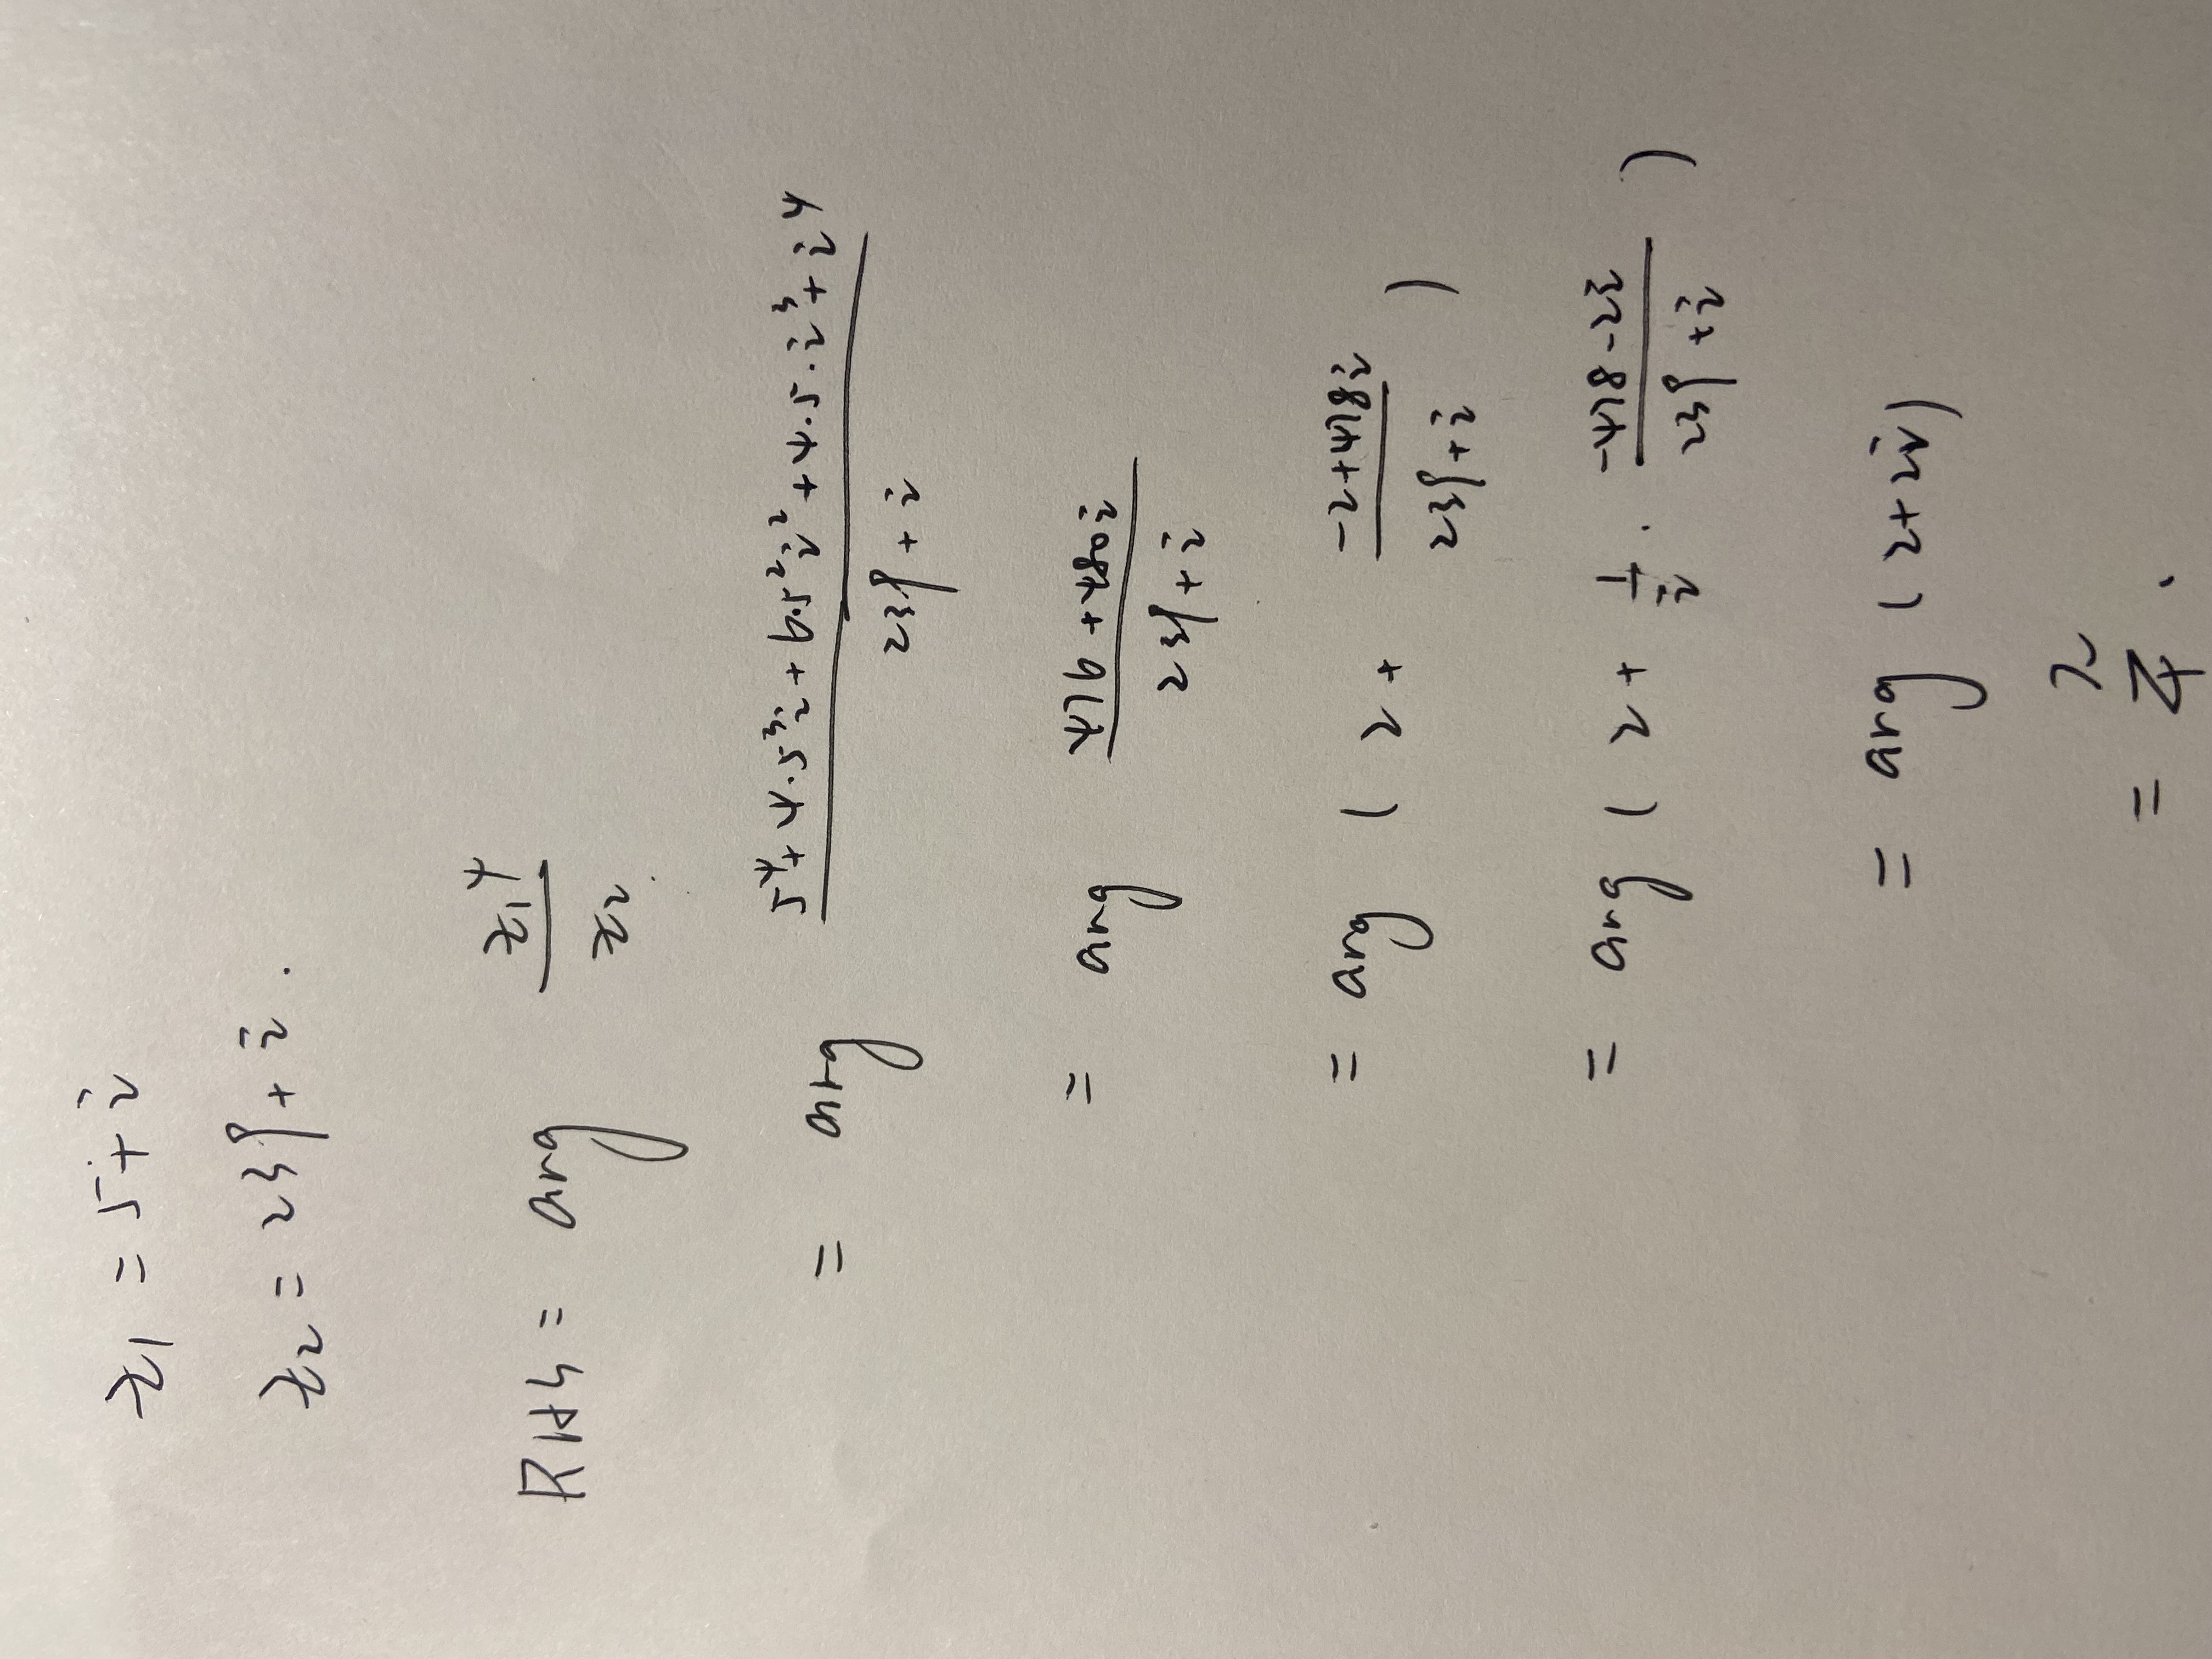 z₁ = 5 + i
z₂ = 239 + i.
RHS = arg z₁⁴/z₂.
= arg (5⁴ + 4·5³i + 6·5²i² + 4·5·i³ + i⁴)/(239 + i)
= arg (476 + 480i)/(239 + i)
= arg (2 + (-2 + 478i)/(239 + i))
= arg (2 + 1/i · (-478 - 2i)/(239 + i))
= arg (2 + 2i)
= π/4.